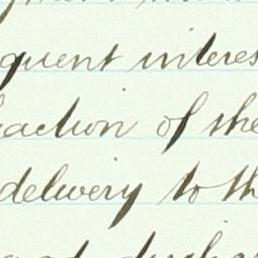 quent interes
action of the
delivery to th